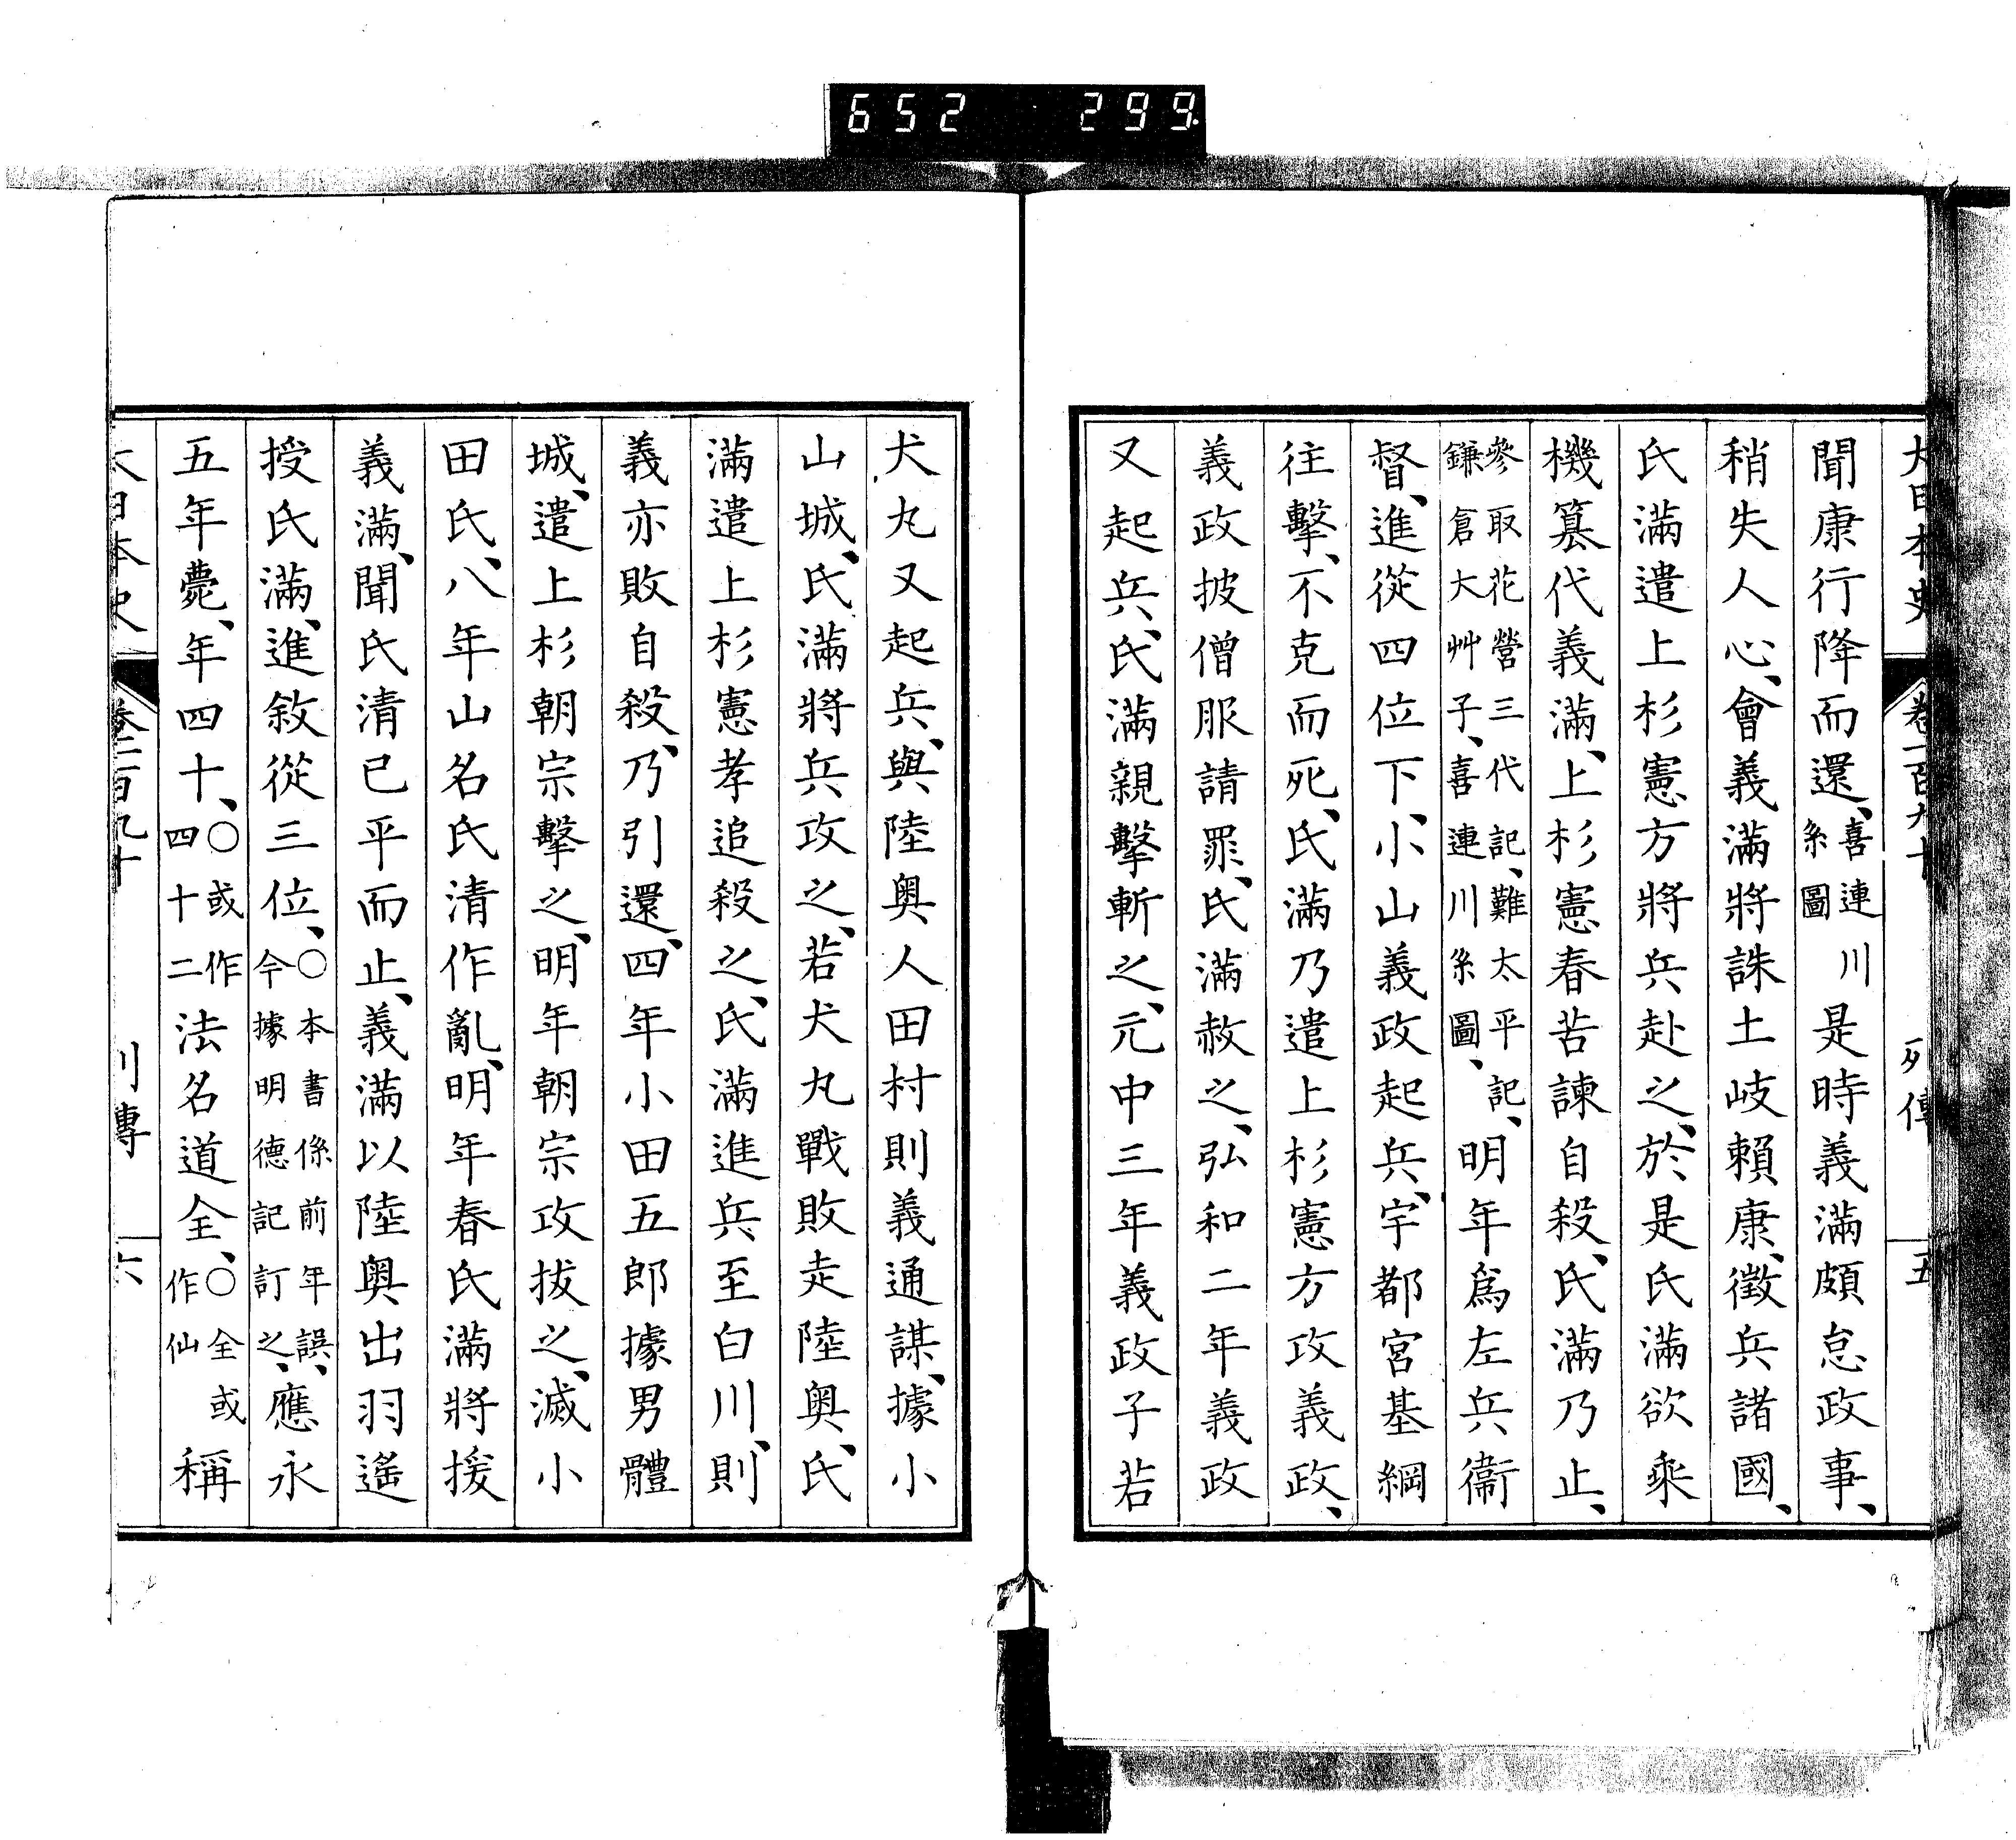 652 299
大日本史 卷一百九十 列傳 五
聞康行降而還、喜連川系圖是時義滿頗怠政事、
稍失人心、會義滿將誅土岐賴康、徵兵諸國、
氏滿遣上杉憲方將兵赴之、於是氏滿欲乘
機簒代義滿、上杉憲春苦諫自殺、氏滿乃止、
參取花營三代記、難太平記、鎌倉大艸子、喜連川系圖、明年爲左兵衞
督、進從四位下、小山義政起兵、宇都宮基綱
往擊、不克而死、氏滿乃遣上杉憲方攻義政、
義政披僧服請罪、氏滿赦之、弘和二年義政
又起兵、氏滿親擊斬之、元中三年義政子若
犬丸又起兵、與陸奥人田村則義通謀、據小
山城、氏滿將兵攻之、若犬丸戰敗走陸奥、氏
滿遣上杉憲孝追殺之、氏滿進兵至白川、則
義亦敗自殺、乃引還、四年小田五郎據男體
城、遣上杉朝宗擊之、明年朝宗攻拔之、滅小
田氏、八年山名氏清作亂、明年春氏滿將援
義滿、聞氏清已平而止、義滿以陸奥出羽遙
授氏滿、進敘從三位、○本書係前年誤、今據明德記訂之、應永
五年薨、年四十、○或作四十二法名道全、○全或作仙稱
大日本史 卷一百九十 列傳 六